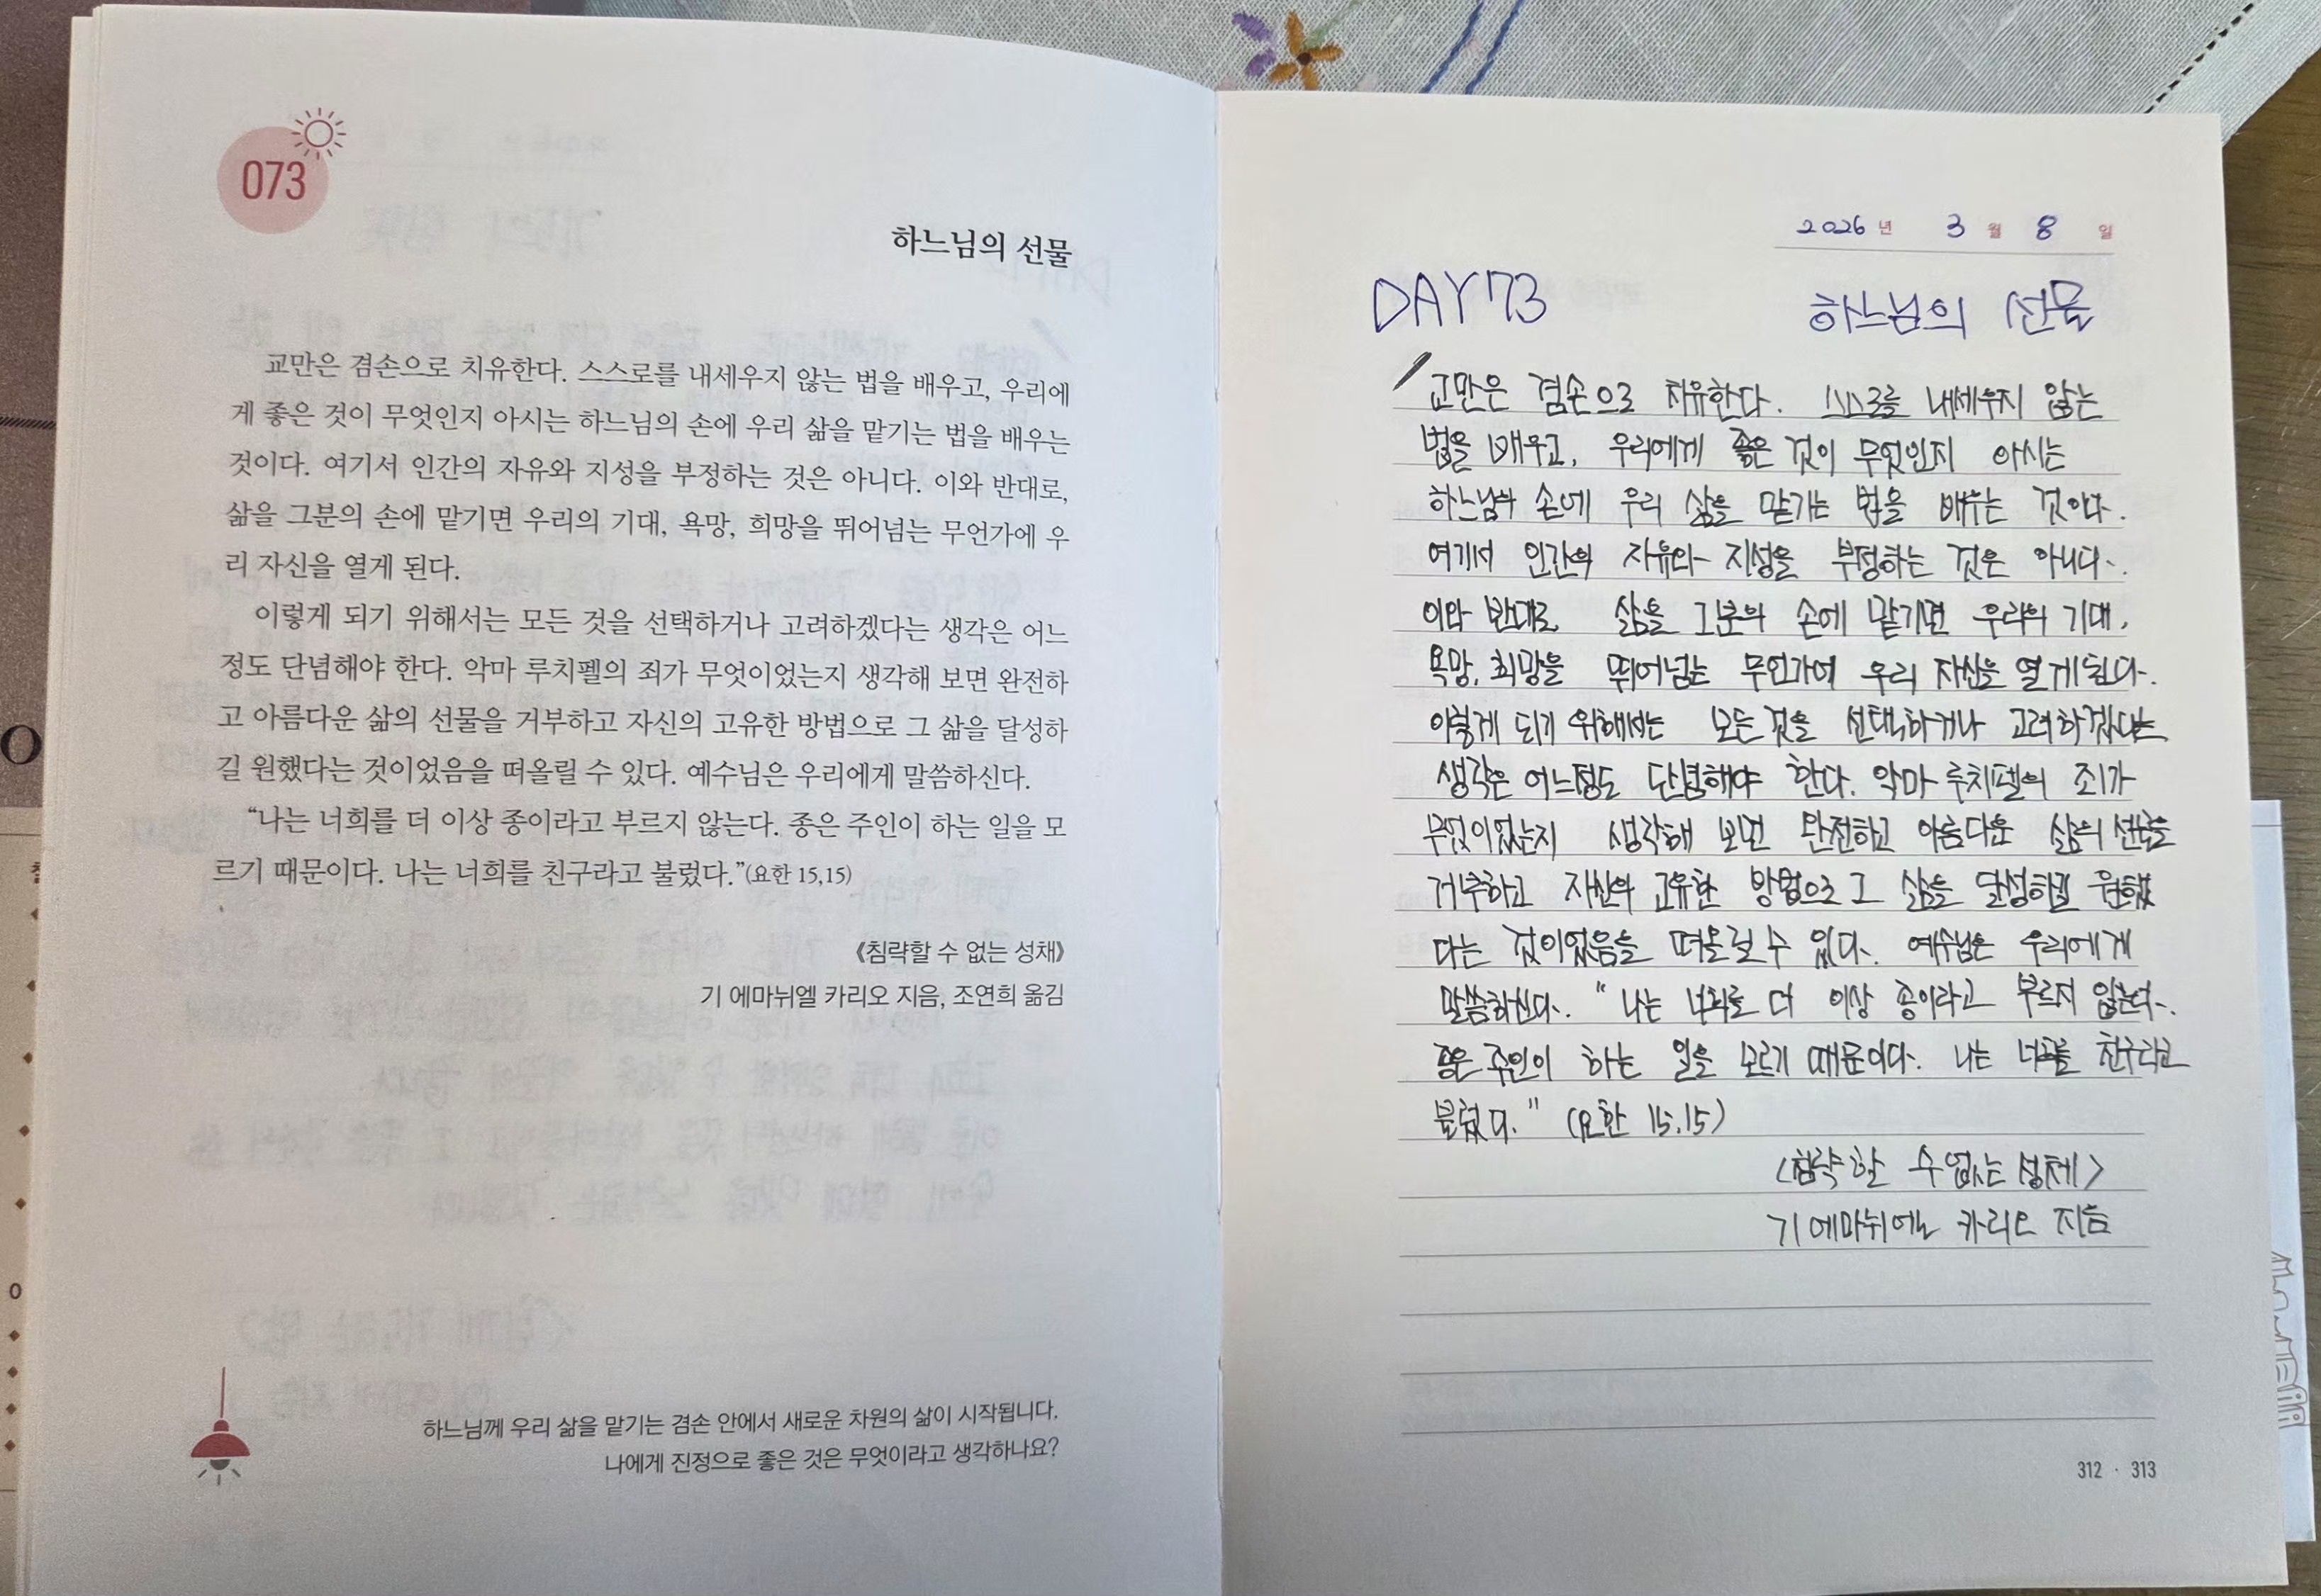 073
하느님의 선물
교만은 겸손으로 치유한다. 스스로를 내세우지 않는 법을 배우고, 우리에
게 좋은 것이 무엇인지 아시는 하느님의 손에 우리 삶을 맡기는 법을 배우는
것이다. 여기서 인간의 자유와 지성을 부정하는 것은 아니다. 이와 반대로,
삶을 그분의 손에 맡기면 우리의 기대, 욕망, 희망을 뛰어넘는 무언가에 우
리 자신을 열게 된다.
이렇게 되기 위해서는 모든 것을 선택하거나 고려하겠다는 생각은 어느
정도 단념해야 한다. 악마 루치펠의 죄가 무엇이었는지 생각해 보면 완전하
고 아름다운 삶의 선물을 거부하고 자신의 고유한 방법으로 그 삶을 달성하
길 원했다는 것이었음을 떠올릴 수 있다. 예수님은 우리에게 말씀하신다.
“나는 너희를 더 이상 종이라고 부르지 않는다. 좋은 주인이 하는 일을 모
르기 때문이다. 나는 너희를 친구라고 불렀다.”(요한 15,15)
《침략할 수 없는 성채》
기 에마뉘엘 카리오 지음, 조연희 옮김
하느님께 우리 삶을 맡기는 겸손 안에서 새로운 차원의 삶이 시작됩니다.
나에게 진정으로 좋은 것은 무엇이라고 생각하나요?
2026 년 3 월 8 일
DAY 73 하느님의 선물
교만은 겸손으로 치유한다. 스스로를 내세우지 않는
법을 배우고, 우리에게 좋은 것이 무엇인지 아시는
하느님의 손에 우리 삶을 맡기는 법을 배우는 것이다.
여기서 인간의 자유와 지성을 부정하는 것은 아니다.
이와 반대로 삶을 그분의 손에 맡기면 우리의 기대,
욕망, 희망을 뛰어넘는 무언가에 우리 자신을 열게 된다.
이렇게 되기 위해서는 모든 것을 선택하거나 고려하겠다는
생각은 어느정도 단념해야 한다. 악마 루치펠의 죄가
무엇이었는지 생각해 보면 완전하고 아름다운 삶의 선물을
거부하고 자신의 고유한 방법으로 그 삶을 달성하길 원했
다는 것이었음을 떠올릴 수 있다. 예수님은 우리에게
말씀하신다. “나는 너희를 더 이상 종이라고 부르지 않는다.
좋은 주인이 하는 일을 모르기 때문이다. 나는 너희를 친구라고
불렀다." (요한 15,15)
<침략할 수 없는 성체>
기 에마뉘엘 카리오 지음
312 · 313